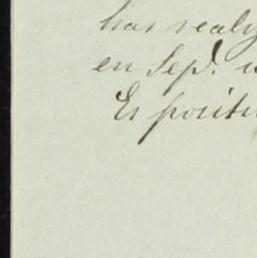 has realy
en Sep.
Es positi